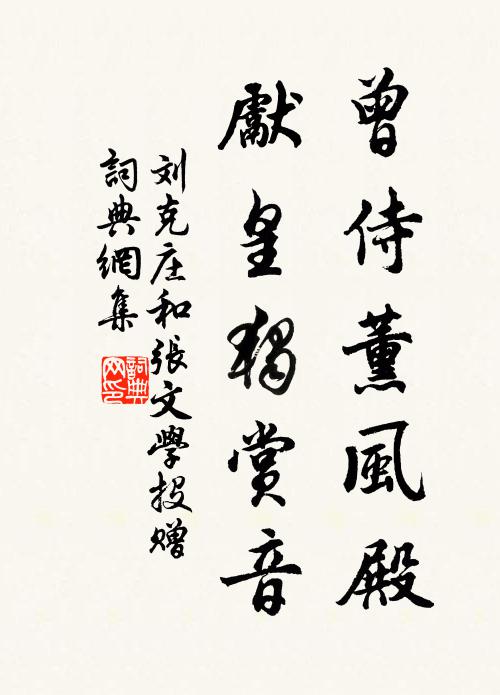 曾侍薰風殿
獻皇獨賞音
刘克庄和張文學投贈
詞典網集
詞典网印